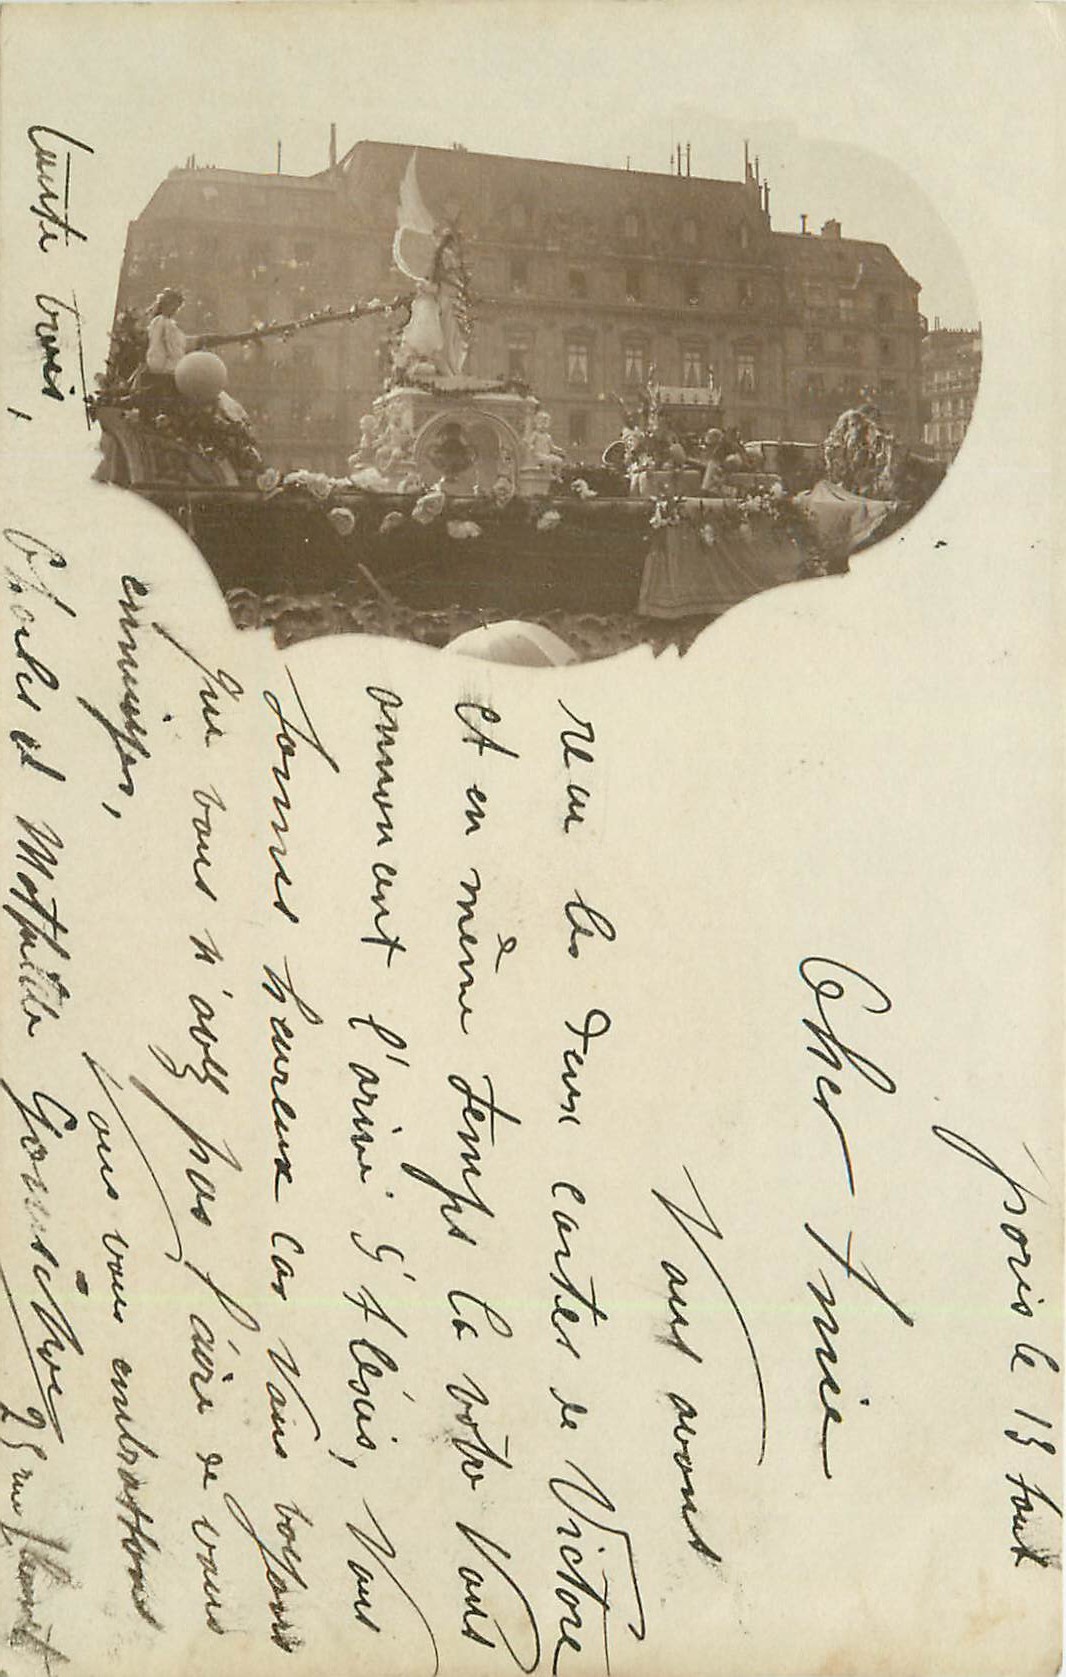 paris le 13 Aout
Cher Amie
Nous avont
reçu les deux cartes de Victore
et en même temps la vôtre Nous
annoncent l'arivé d'Alésis, Nous
sommes heureux car Nous voyons
que vous n'avez pas l'aire de vous
ennuiyer,
Nous vous embrassons
toute trois,
Charles et Mathilde
25 rue